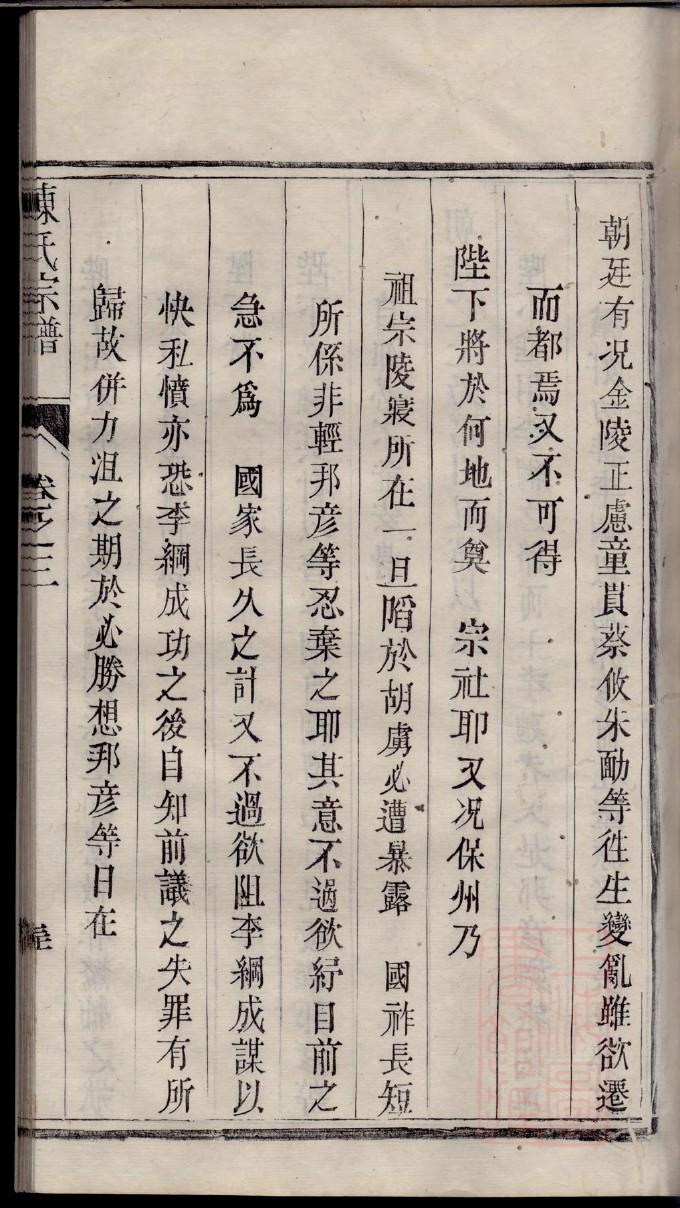 朝廷有况金陵正慮童貫蔡攸朱勔等徃生變亂雖欲遷
而都焉又不可得
陛下將於何地而奠　宗社耶又况保州乃
祖宗陵寢所在一旦陷於胡虜必遭暴露　國祚長短
所係非輕邦彥等忍棄之耶其意不過欲紓目前之
急不爲　國家長久之計又不過欲阻李綱成謀以
快私憤亦恐李綱成功之後自知前議之失罪有所
歸故併力沮之期於必勝想邦彥等日在
陳氏宗譜
卷之三